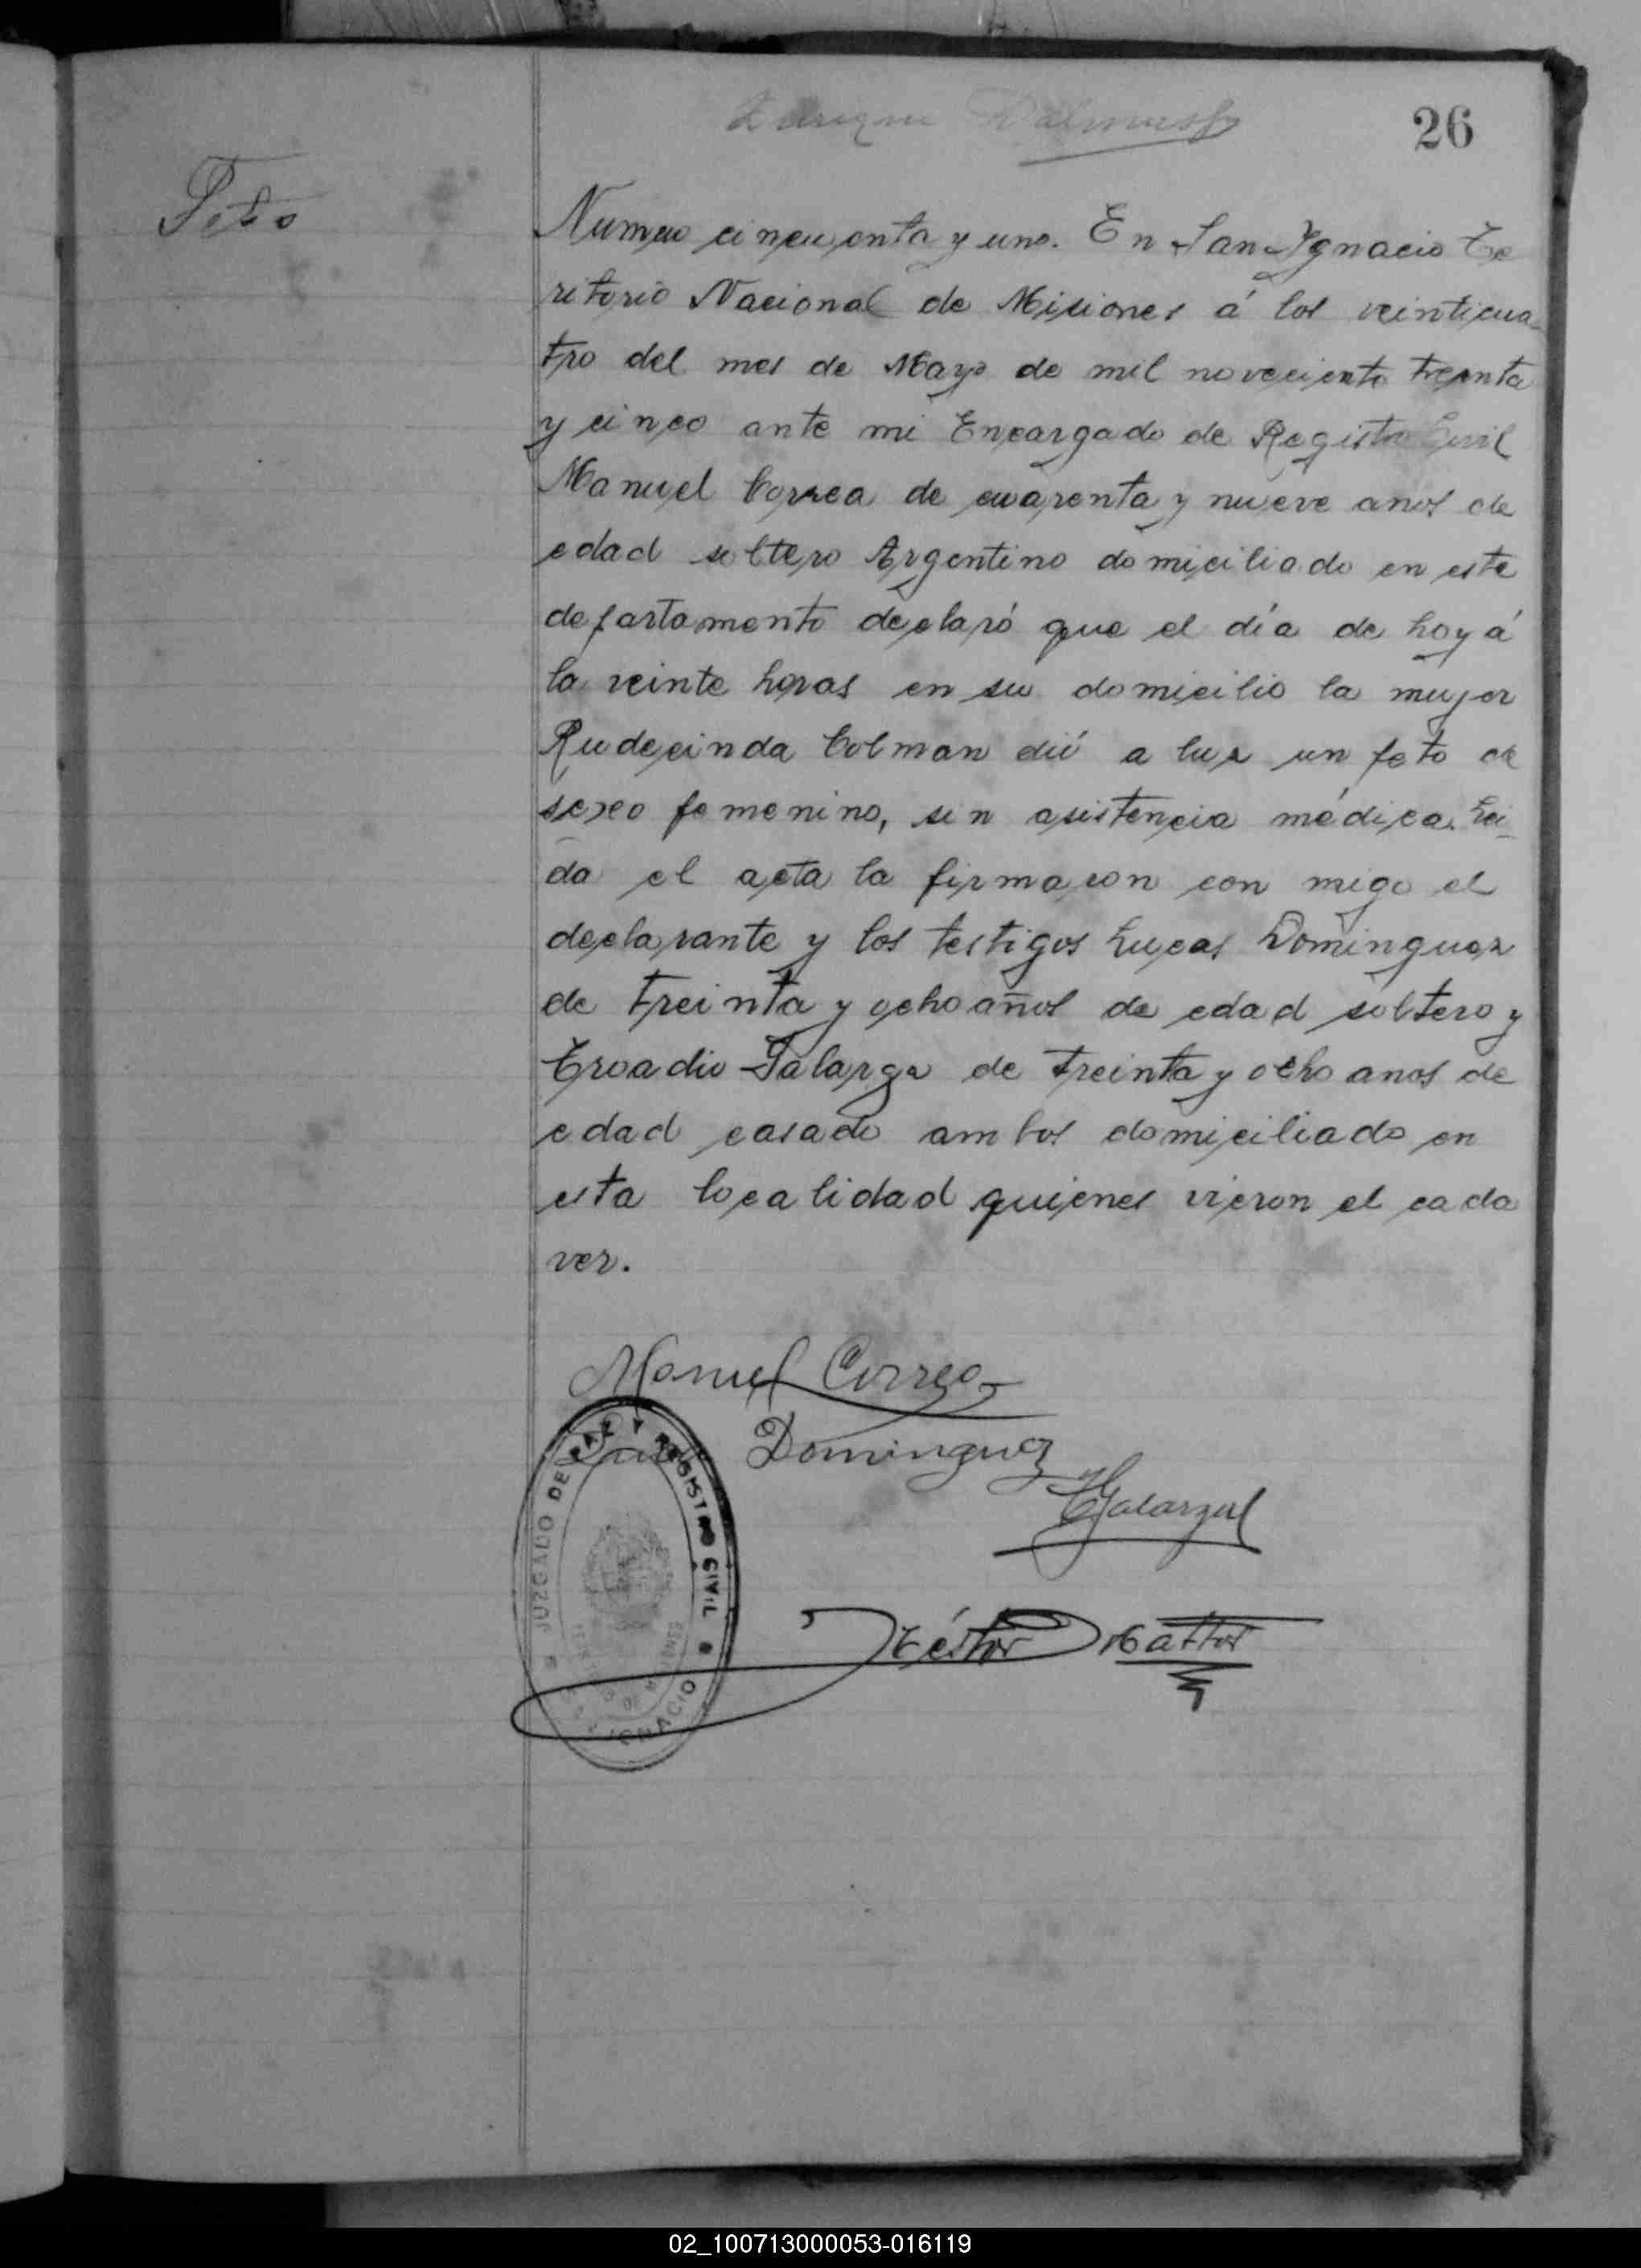 26
Feto
Numero cincuenta y uno. En San Ygnacio Te
ritorio Nacional de Misiones á los veinticua-
tro del mes de Mayo de mil noveciento treinta
y cinco ante mi Encargado de Registro Civil
Manuel Correa de cuarenta y nueve anos de
edad soltero Argentino domiciliado en este
departamento declaró que el día de hoy á
la veinte horas en su domicilio la mujer
Rudecinda Colman dió a luz un feto de
sexo femenino, sin asistencia médica. Lei-
da el acta la firmaron con migo el
declarante y los testigos Lucas Dominguez
de treinta y ocho años de edad soltero y
Troadio Galarza de treinta y ocho anos de
edad casado ambos domiciliado en
esta localidad quienes vieron el cada
ver.
Manuel Correa
Dominguez
Galarza
Néstor Mattos
JUZGADO DE PAZ Y REGISTRO CIVIL
IGNACIO
02_100713000053-016119